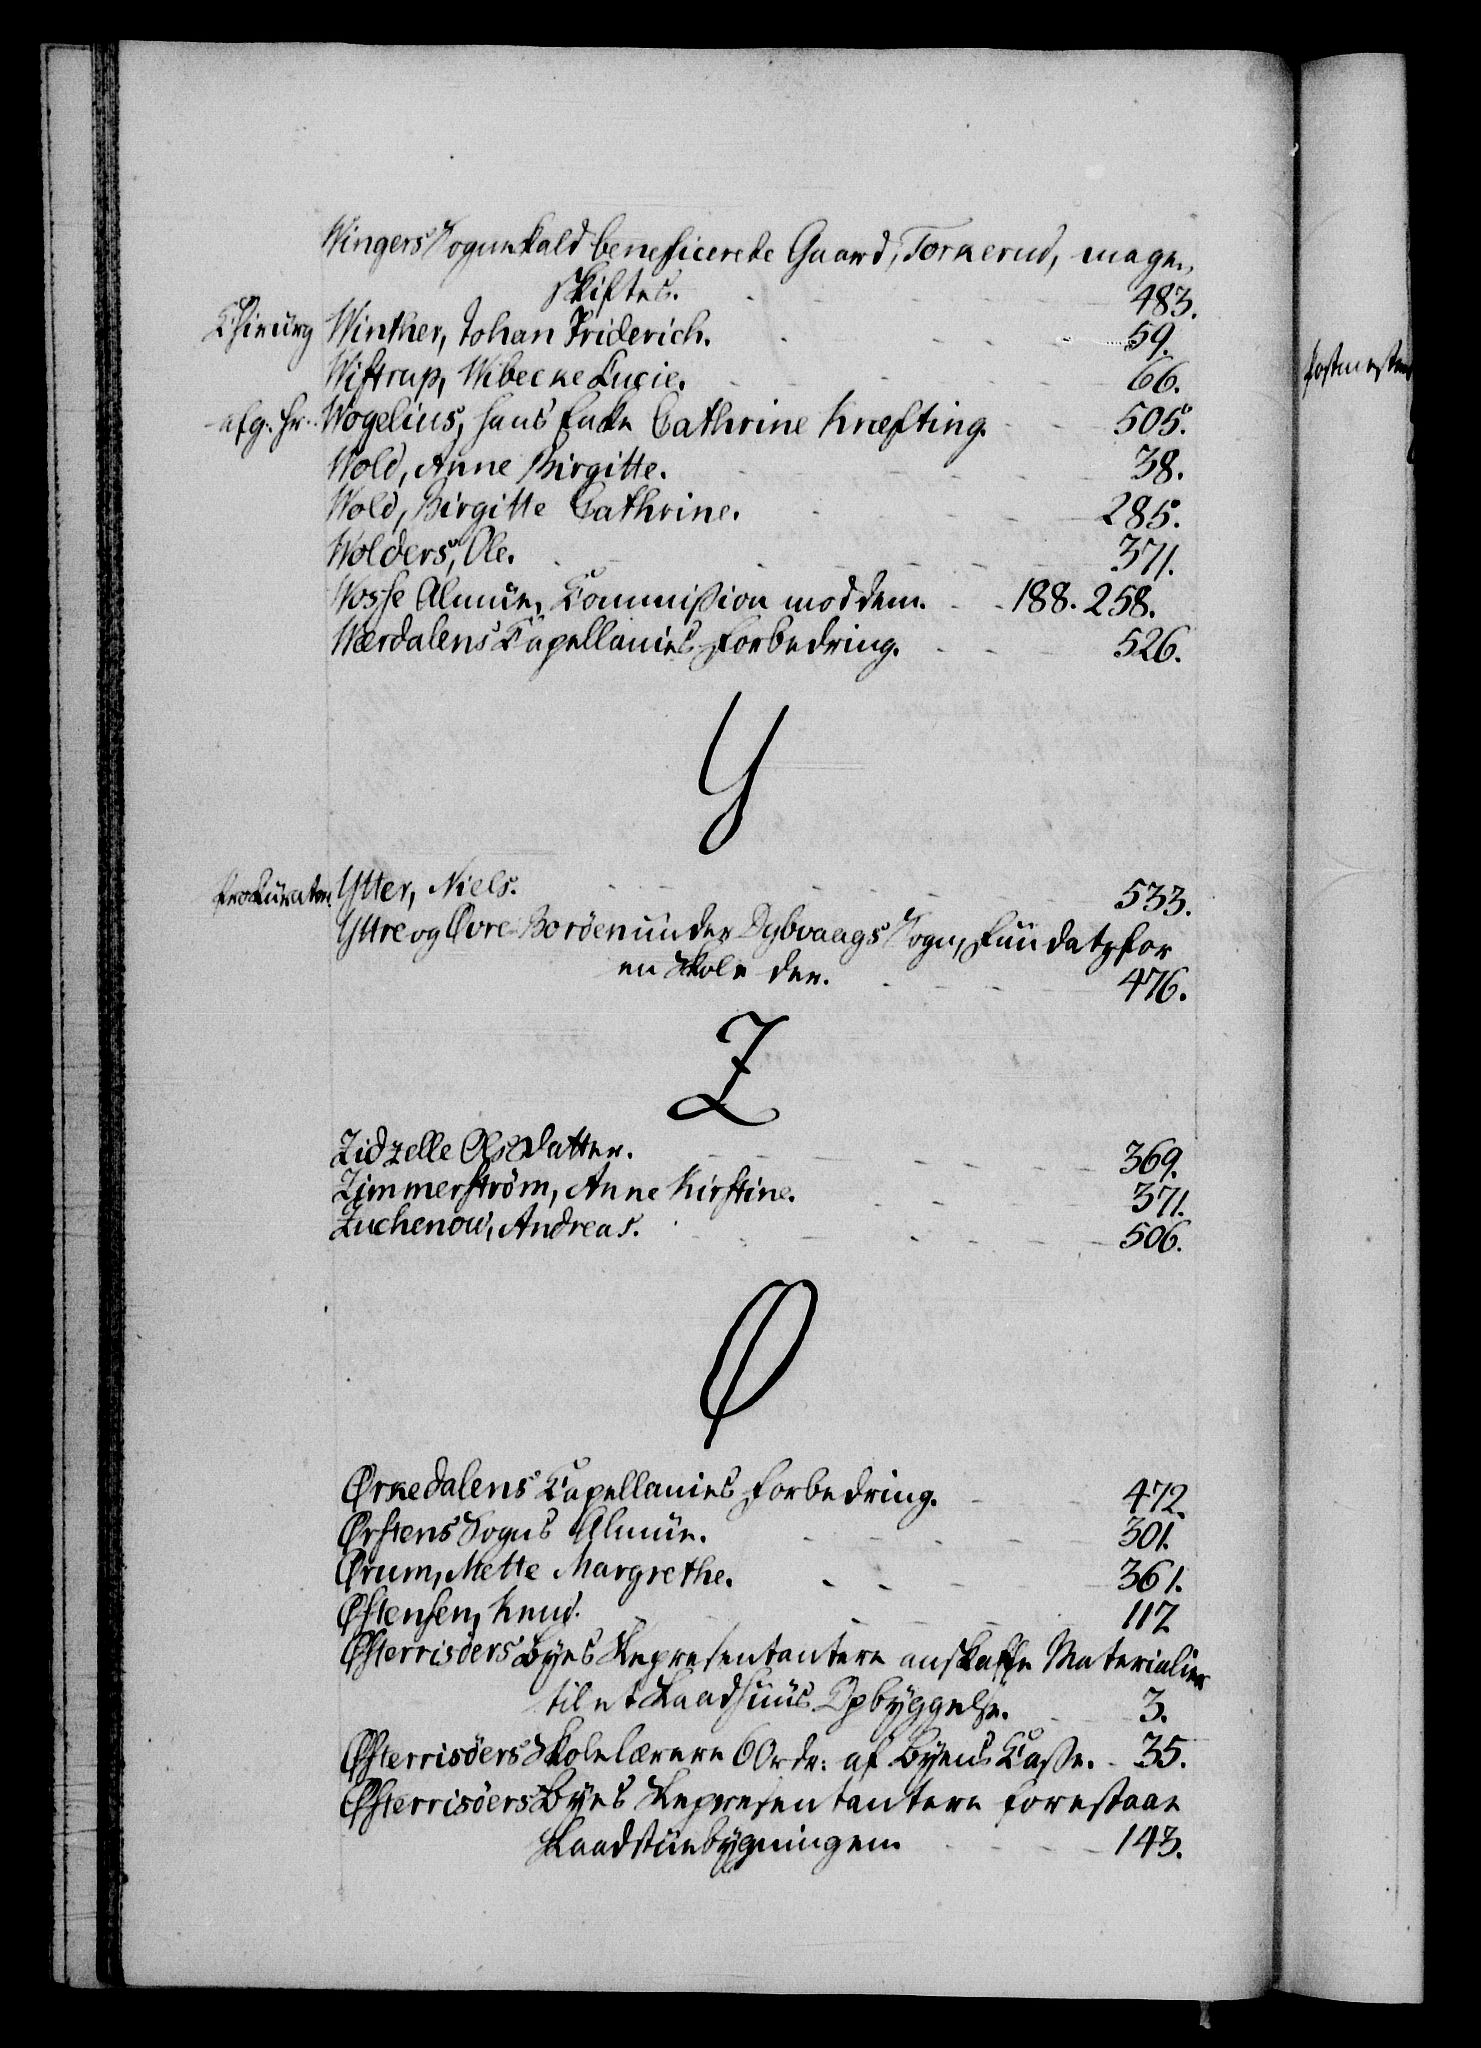 Wingers Sognekald beneficerede Gaard, Torkerud, mage„
skiftes. 483.
Chirurg Winther, Johan Friderich. 59.
Wistrup, Wibecke Lucie. 66.
afg. Hr. Wogelius, hans Enke Cathrine Kræfting. 505.
Wold, Anne Birgitte. 38.
Wold, Birgitte Cathrine. 285.
Wolders, Ole. 371.
Wosse Almue, Commission mod dem. 188. 258.
Værdalens Capellanies Forbedring. 526.
Y
Prokurator Ytter, Niels. 533.
Yttre og Øvre Borøen under Dybvaags Sogn, Fundatz for
en Skole der. 476.
Z
Zidzelle Olsdatter. 369.
Zimmerström, Anne Kirstine. 371.
Zuchenow, Andreas. 506.
Ø
Ørkedalens Capellanies Forbedring. 472.
Ørstens Sogns Almue. 301.
Ørum, Mette Margrethe. 361.
Østensen, Knud. 117
Østerrisöers Byes Repræsentantere anskaffe Materialier
til et Raadhuus Opbyggelse. 3.
Østerrisöers Skolelærere 60 rdr: af Byens Casse. 35.
Østerrisöers Byes Repræsentantere forestaae
Raadstuebygningen 143.
Postmester